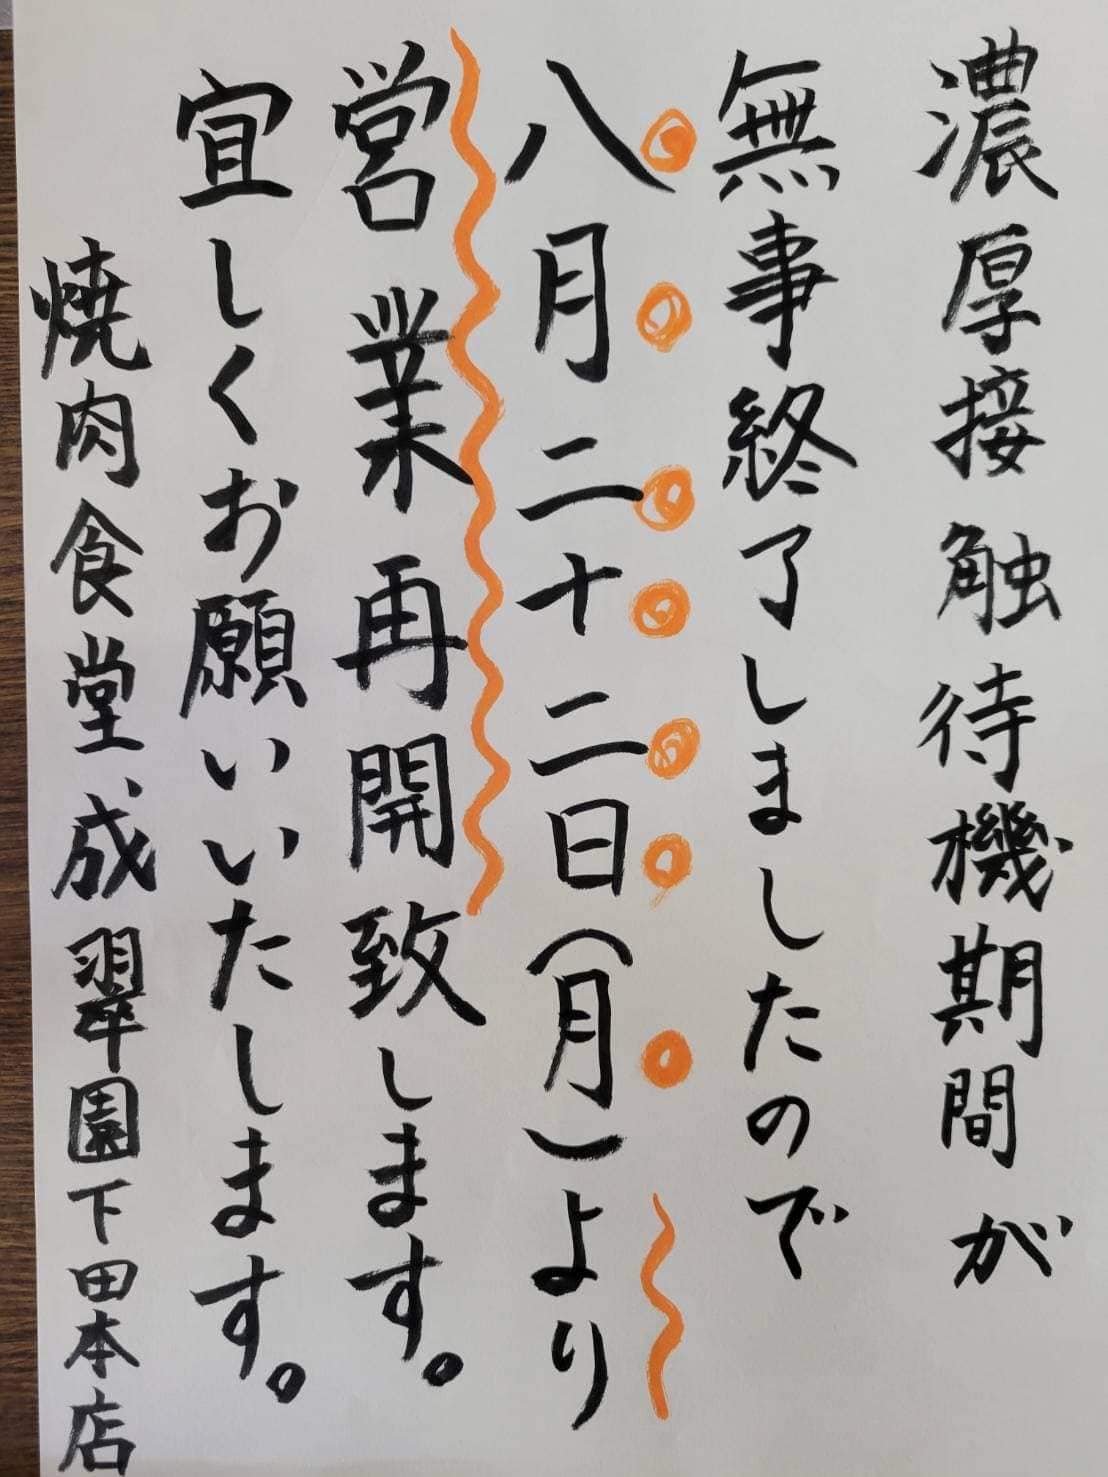 濃厚接触待機期間が
無事終了しましたので
八月二十二日(月)より
営業再開致します。
宜しくお願いいたします。
焼肉食堂成翠園下田本店